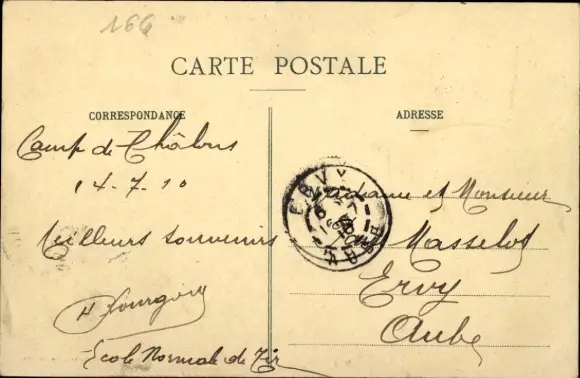 166
CARTE POSTALE
CORRESPONDANCE
ADRESSE
Camp de Châlons
14-7-10
Meilleurs souvenirs
Ecole Normale de Tir
Madame et Monsieur
Masselot
Ervy
Aube
ERVY